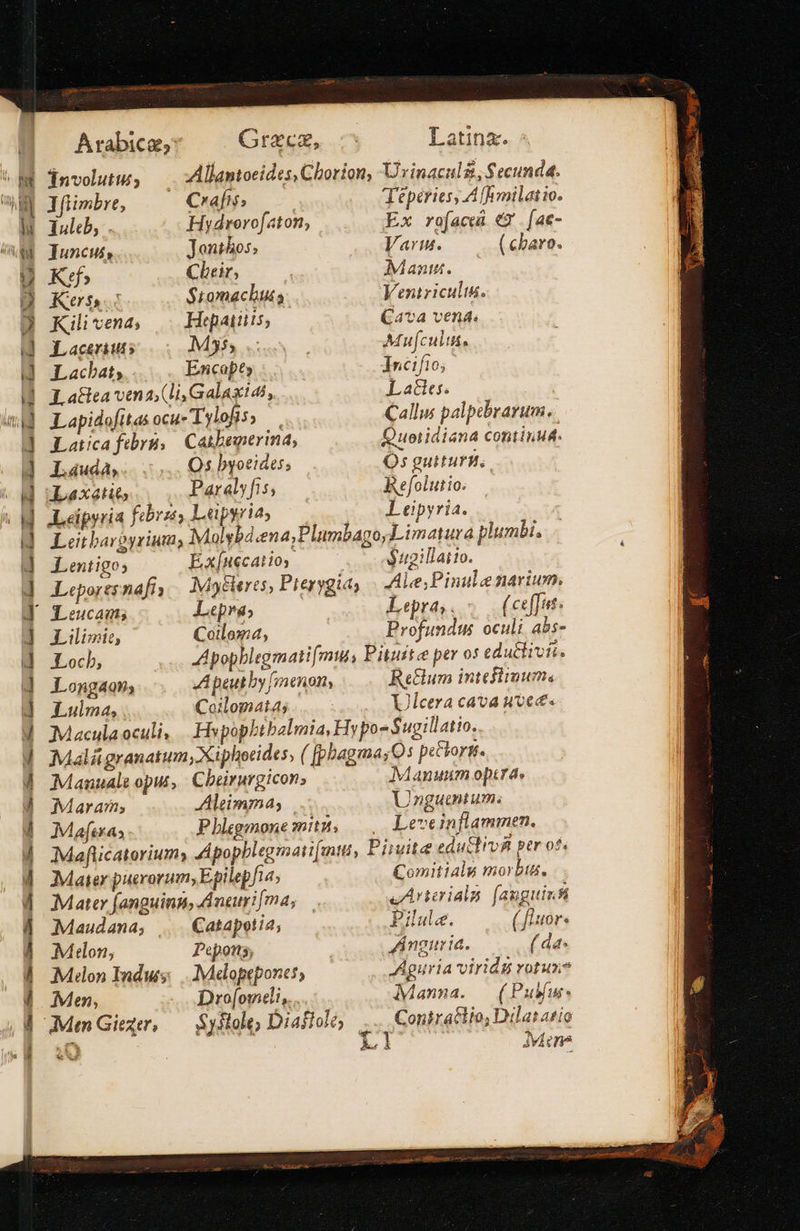 Arabicæ, Græcæ, Latinæ.
Involutus, Allantoeides, Chorion, Urinaculũ, Secunda.
Iſtimbre, Craſis, Teperies, Aſſimilatio.
Iuleb, Hydroroſaton, Ex roſaceâ & ſac-
Iuncus, Jonthos, Varus. (charo.
Keſ, Cheir, Manus.
Kers, Stomachus, Ventriculus.
Kilivena, Hepatitis, Cava vena.
Lacertus, Mys, Muſculus.
Lachat, Encope, Inciſio,
Lactea vena, (li, Galaxias, Lactes.
Lapidoſitas ocu- Tyloſis, Callus palpebrarum.
Latica febris, Cathemerina, Quotidiana continua.
Lauda, Os hyoeides, Os gutturis.
Laxatio, Paralyſis, Reſolutio.
Leipyria febris, Leipyria, Leipyria.
Leithargyrium, Molybdæna, Plumbago, Limatura plumbi.
Lentigo, Exſuccatio, Sugillatio.
Lepores naſi, Mycteres, Pterygia, Alæ, Pinulæ narium.
Leucam, Lepra, Lepra, (ceſſus.
Lilimie, Coiloma, Profundus oculi abs-
Loch, Apophlegmatiſmus, Pituitæ per os eductivũ.
Longaon, Apeuthyſmenon, Rectum inteſtinum.
Lulma, Coilomata, Ulcera cava uveæ.
Macula oculi, Hypophthalmia, Hypo- Sugillatio.
Malũ granatum, Xiphoeides, (ſphagma, Os pectoris.
Manuale opus, Cheirurgicon, Manuum opera.
Maram, Aleimma, Unguentum.
Maſera, Phlegmone mitis, Leve inflammen.
Maſticatorium, Apophlegmatiſmus, Pituitæ eductivũ per os.
Mater puerorum, Epilepſia, Comitialis morbus.
Mater ſanguinis, Aneuriſma, Arterialis ſanguinis
Maudana, Catapotia, Pilulæ. (fluor.
Melon, Pepons, Anguria. (da.
Melon Indus, Melopepones, Aguria viridis rotun-
Men, Droſomeli, Manna. (Pulſus.
Men Giezer, Syſtole, Diaſtole, Contractio, Dilatatio
Ll Mens